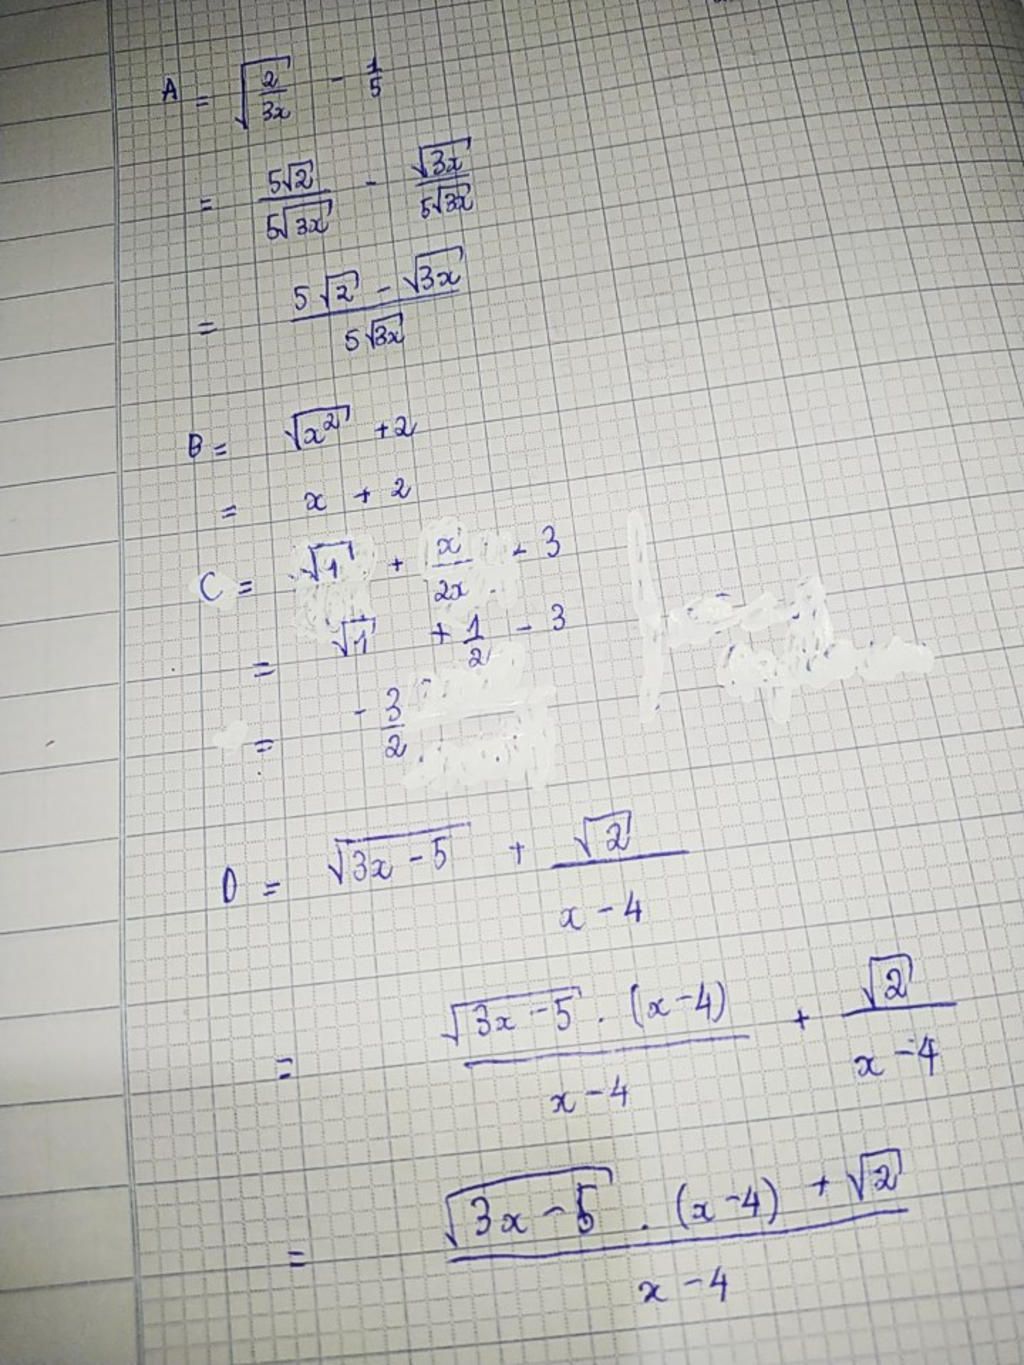 A = √(2/3x) - 1/5
= 5√2/5√3x - √3x/5√3x
= (5√2 - √3x)/5√3x
B = √x² + 2
= x + 2
C = √1 + x/2x - 3
= √1 + 1/2 - 3
= - 3/2
D = √(3x-5) + √2/(x-4)
= √(3x-5) . (x-4)/(x-4) + √2/(x-4)
= (√(3x-5) . (x-4) + √2)/(x-4)